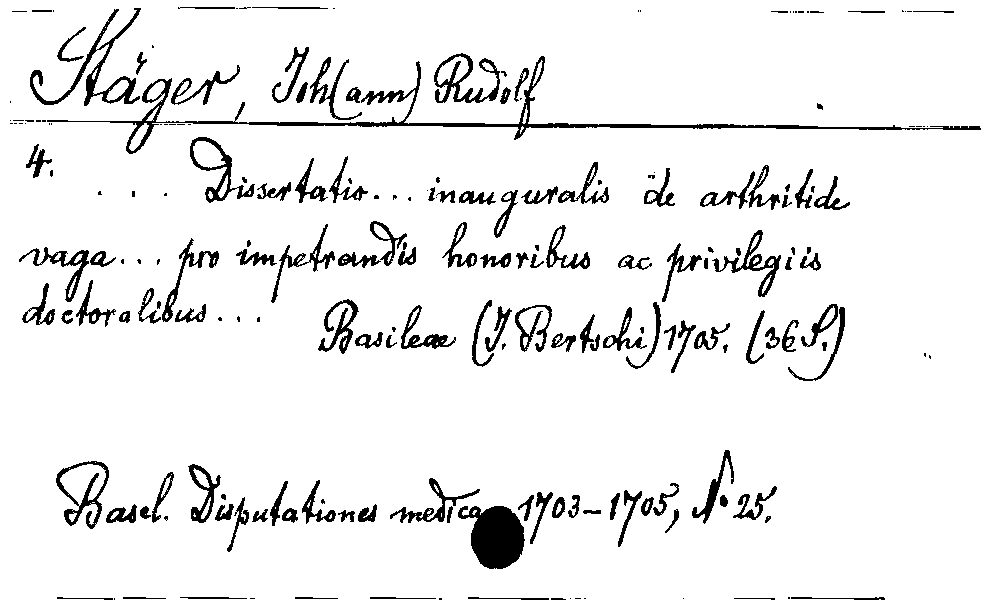 Stäger, Joh(ann) Rudolf
4.
... Dissertatio... inauguralis de arthritide
vaga... pro impetrandis honoribus ac privilegiis
doctoralibus...
Basileae (J. Bertschi) 1705. (36 S.)
Basel. Disputationes medica 1703-1705, No 25.